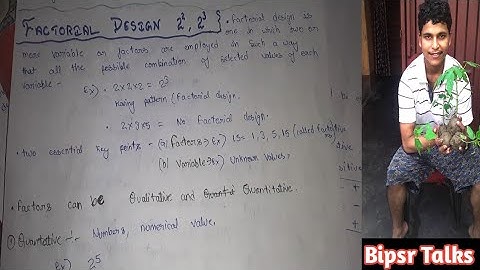 FACTORIAL DESIGN 2², 2³ } • Factorial design is
one in which two or
more variable or factors are employed in such a way
that all the possible combination of selected values of each
variable :-
Ex) • 2x2x2 = 2³
Having pattern (Factorial design.
• 2x3x5 = No factorial design.
• Two essential key points - (a) Factors → Ex) 15 = 1, 3, 5, 15 (called factors
(b) Variable → Ex) Unknown values.
• Factors can be Qualitative and Quantitative.
① Quantitative :- Numbers, numerical value.
Ex) 2⁵
sitive
+
+
Bipsr Talks